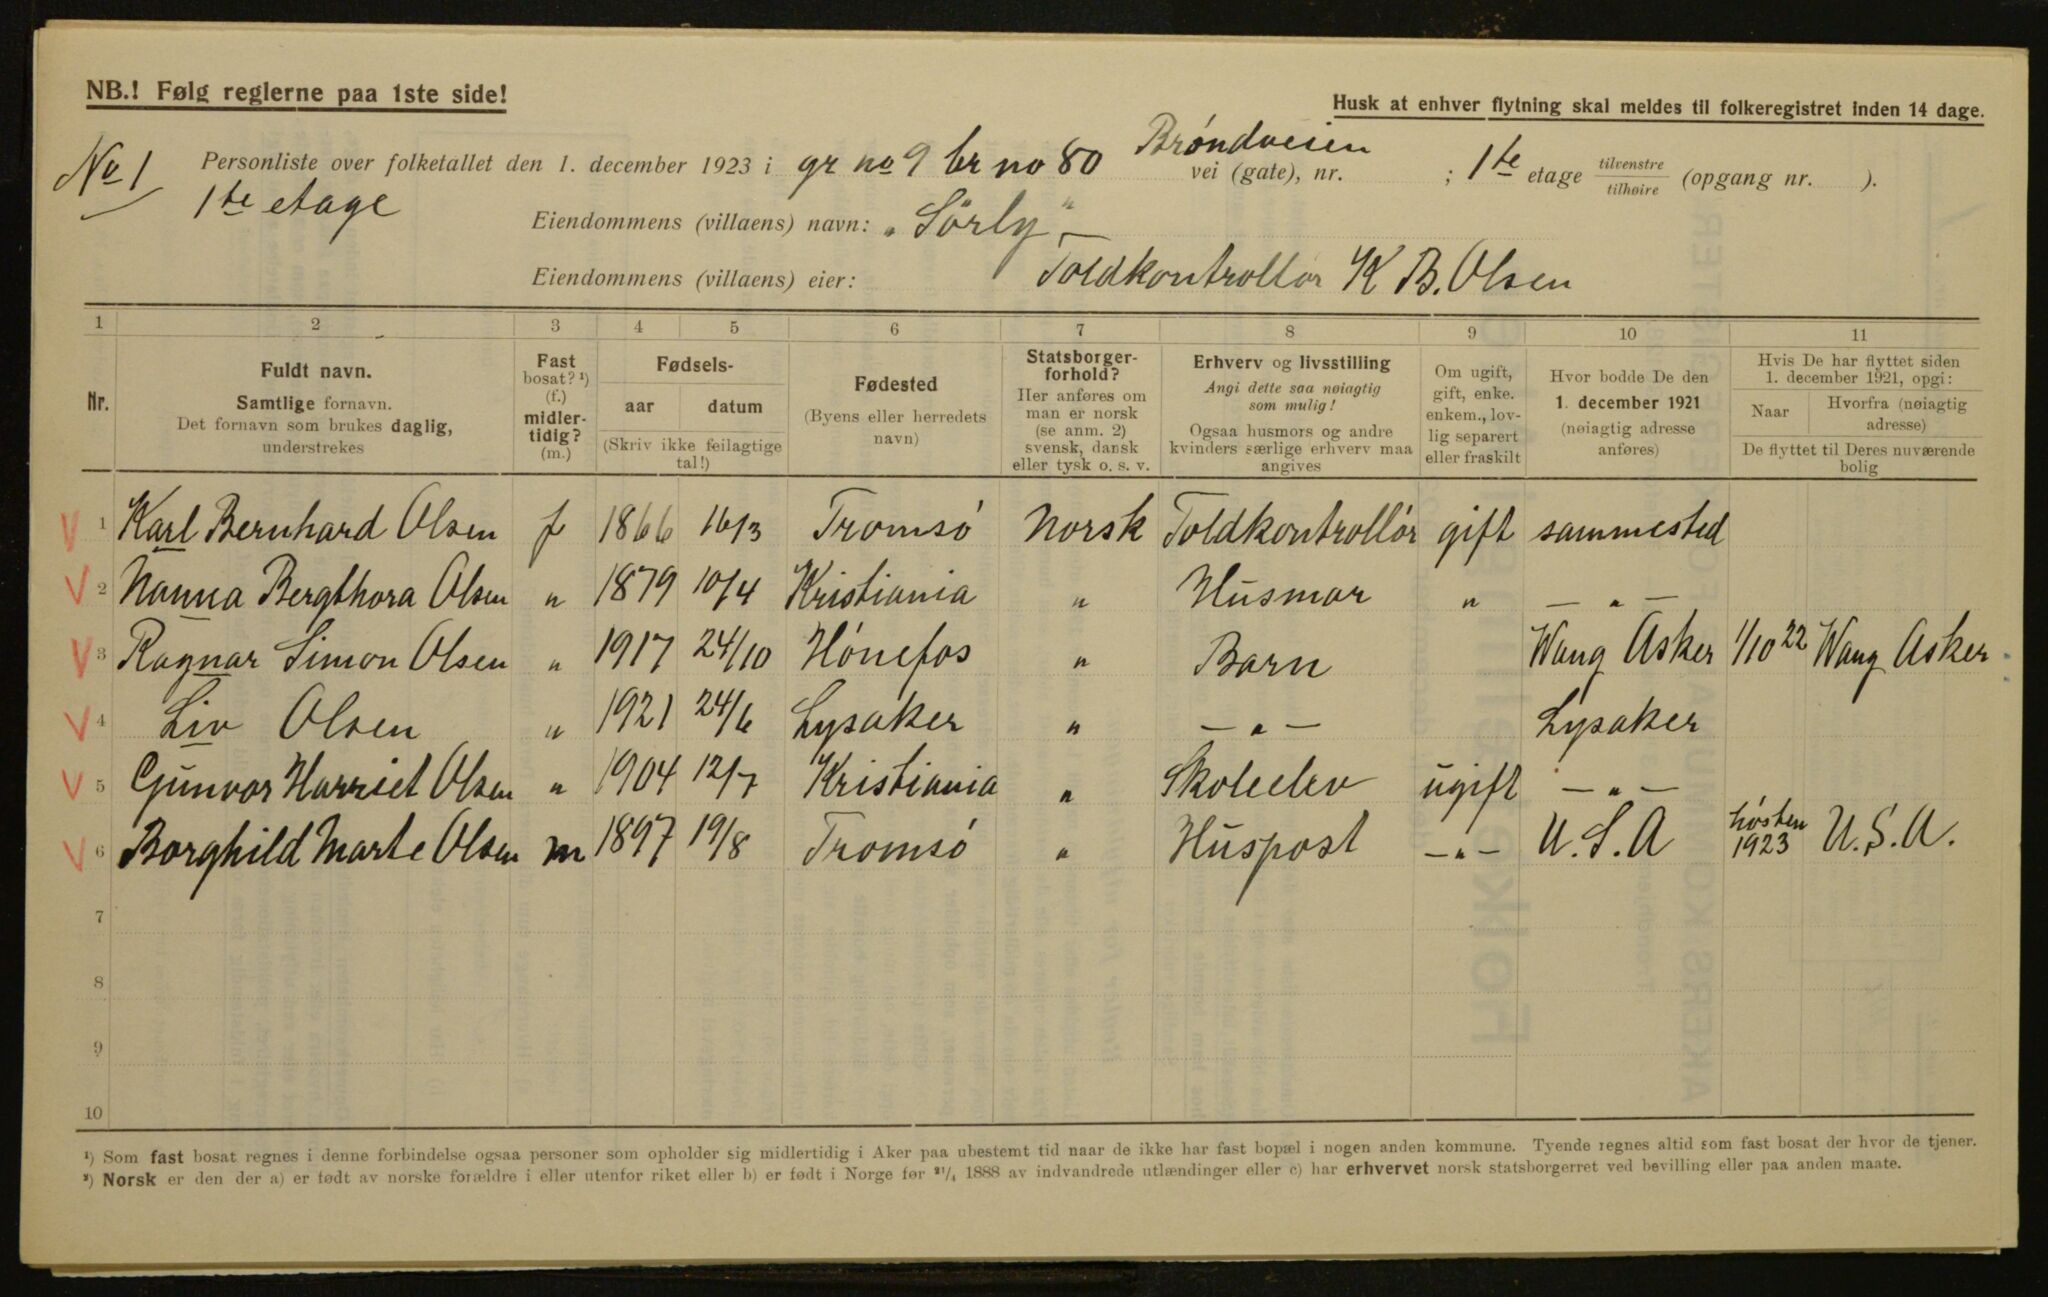 NB.! Følg reglerne paa 1ste side!
Husk at enhver flytning skal meldes til folkeregistret inden 14 dage.
No 1
Personliste over folketallet den 1. december 1923 i gr no 9 br no 80 Brøndveien vei (gate), nr. ; 1te etage tilvenstre / tilhøire (opgang nr. ).
1te etage
Eiendommens (villaens) navn: „Sörly“
Eiendommens (villaens) eier: Toldkontrollør K B. Olsen
1 2 3 4 5 6 7 8 9 10 11
Nr.
Fuldt navn.
Samtlige fornavn.
Det fornavn som brukes daglig,
understrekes
Fast
bosat? ¹)
(f.)
midler-
tidig?
(m.)
Fødsels-
aar datum
(Skriv ikke feilagtige
tal!)
Fødested
(Byens eller herredets
navn)
Statsborger-
forhold?
Her anføres om
man er norsk
(se anm. 2)
svensk, dansk
eller tysk o. s. v.
Erhverv og livsstilling
Angi dette saa nøiagtig
som mulig!
Ogsaa husmors og andre
kvinders særlige erhverv maa
angives
Om ugift,
gift, enke.
enkem., lov-
lig separert
eller fraskilt
Hvor bodde De den
1. december 1921
(nøiagtig adresse
anføres)
Hvis De har flyttet siden
1. december 1921, opgi:
Naar
Hvorfra (nøiagtig
adresse)
De flyttet til Deres nuværende
bolig
V 1 Karl Bernhard Olsen f 1866 16/3 Tromsø Norsk Toldkontrollør gift sammested
V 2 Nanna Bergthora Olsen " 1879 10/4 Kristiania " Husmor " — " —
V 3 Ragnar Simon Olsen " 1917 24/10 Hønefos " Barn Wang Asker 1/10 22 Wang Asker
V 4 Liv Olsen " 1921 24/6 Lysaker " — " — Lysaker
V 5 Gunvor Harriet Olsen " 1904 12/7 Kristiania " Skoleelev ugift — " —
V 6 Borghild Marte Olsen m 1897 19/8 Tromsø " Huspost — " — U.S.A høsten 1923 U.S.A.
7
8
9
10
¹) Som fast bosat regnes i denne forbindelse ogsaa personer som opholder sig midlertidig i Aker paa ubestemt tid naar de ikke har fast bopæl i nogen anden kommune. Tyende regnes altid som fast bosat der hvor de tjener.
²) Norsk er den der a) er født av norske forældre i eller utenfor riket eller b) er født i Norge før ²¹/₄ 1888 av indvandrede utlændinger eller c) har erhvervet norsk statsborgerret ved bevilling eller paa anden maate.